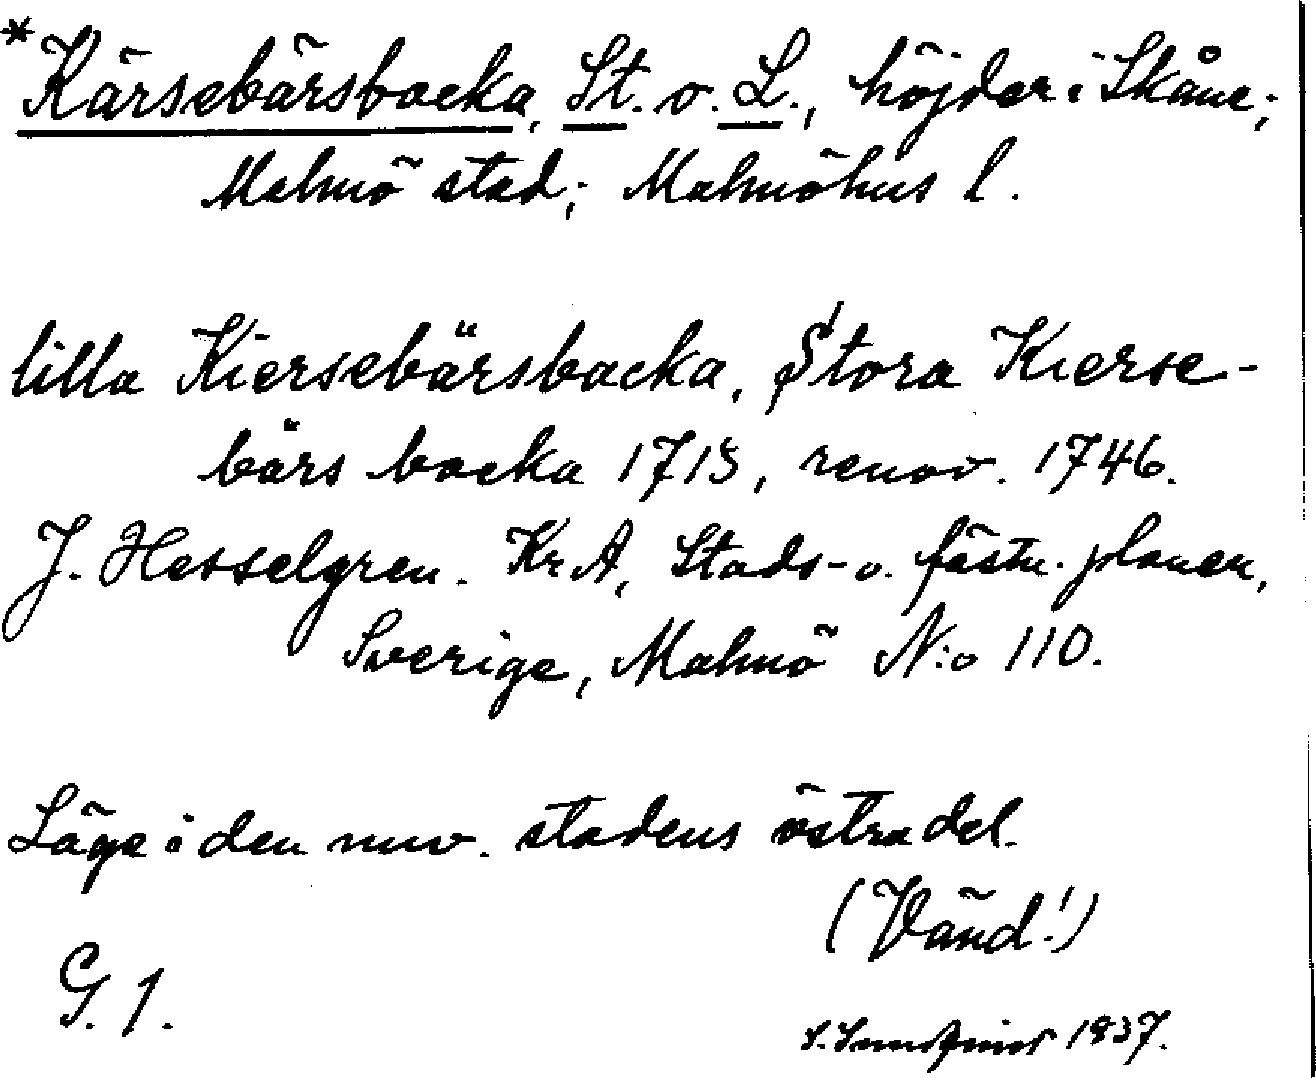 *Kärsebärsbacka, St. o. L., höjder i Skåne;
Malmö stad; Malmöhus l.
lilla Kiersebärsbacka, Stora Kierse-
bärs backa 1715, renov. 1746.
J. Hesselgren. Kr A, Stads- o. fästn. planer,
Sverige, Malmö N:o 110.
Läge i den nuv. stadens östra del.
(Vänd!)
G. 1.
S. 1937.